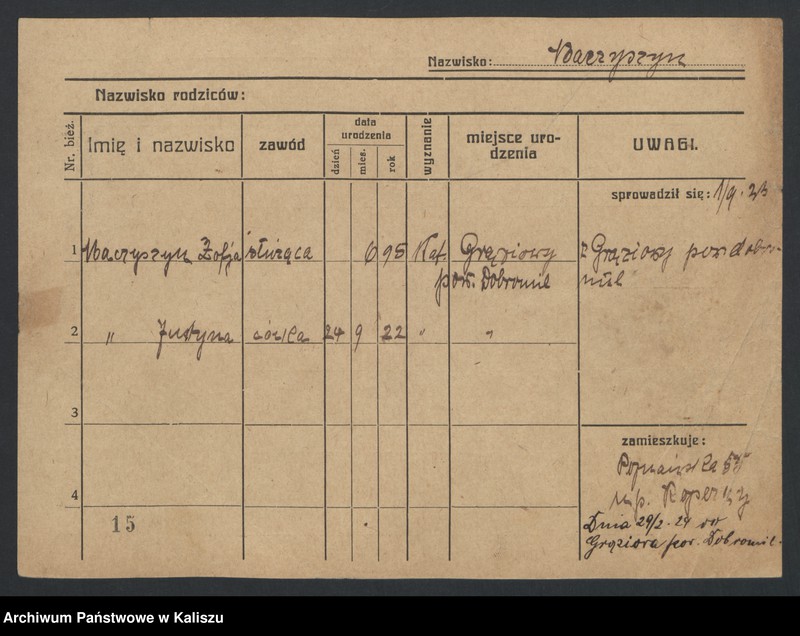 Nazwisko: Maczyszyn
Nazwisko rodziców:
Nr. bież. Imię i nazwisko zawód data urodzenia dzień mies. rok wyznanie miejsce urodzenia UWAGI.
sprowadził się: 1/9. 23
1 Maczyszyn Zofja służąca 6 95 Kat. Grąziowy z Grąziowy pow. dobro-
pow. Dobromil mil
2 " Justyna córka 24 9 22 " "
3
zamieszkuje:
Poznańska
4 u p.
15 Dnia 29/2. 24 do
Grąziowa pow. Dobromil.
Archiwum Państwowe w Kaliszu